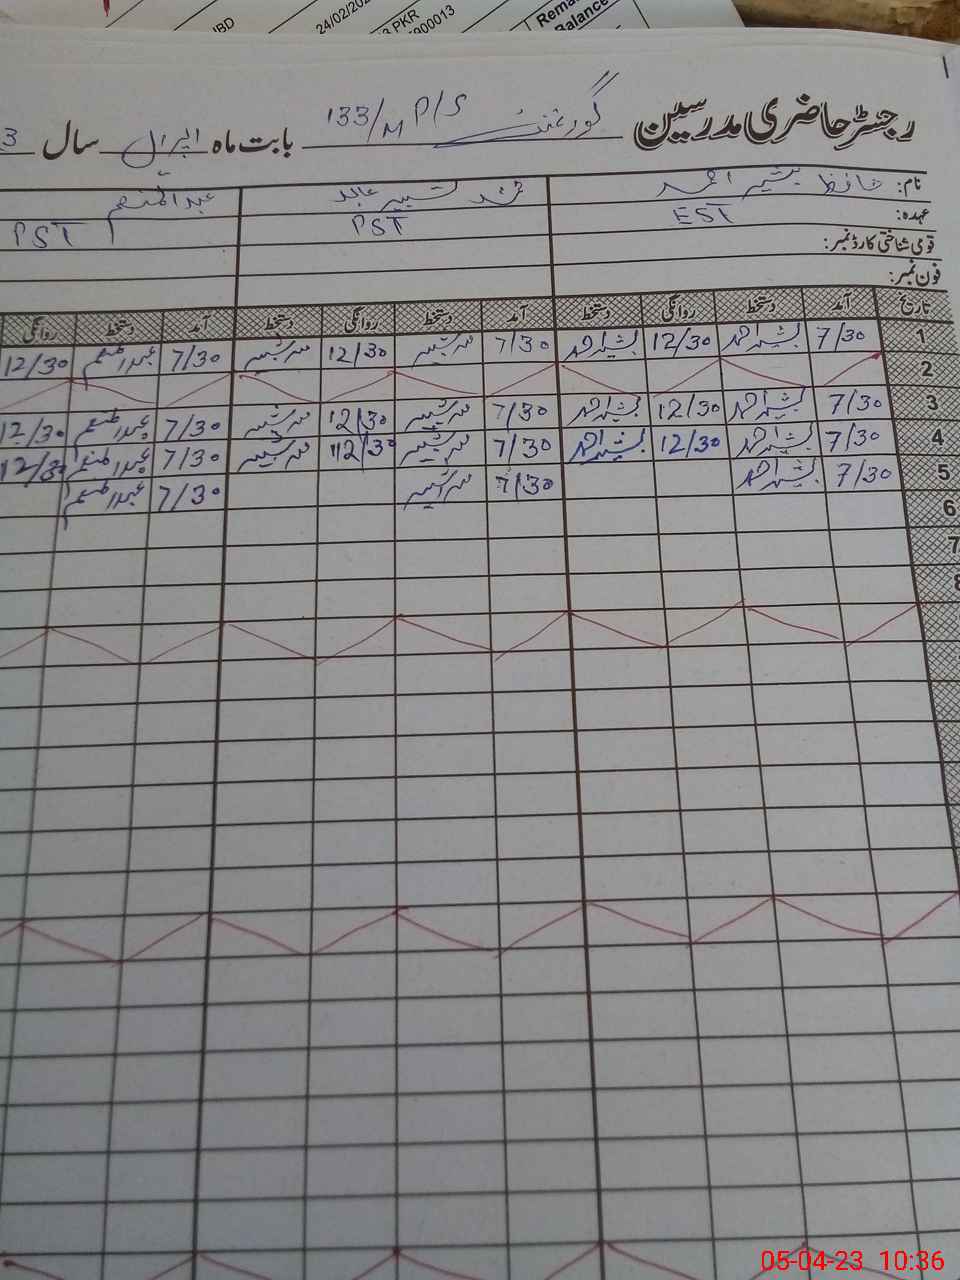 IBD 24/02/202 3 PKR 900013 Rema Balance
رجسٹر حاضری مدرسین گورنمنٹ 133/M P/S بابت ماہ اپریل سال 3
نام: حافظ بشیر احمد محمد شبیر عابد عبدالمنعم
عہدہ: EST PST PST
قومی شناختی کارڈ نمبر:
فون نمبر:
تاریخ آمد دستخط روانگی دستخط آمد دستخط روانگی دستخط آمد دستخط روانگی
1 7/30 بشیر احمد 12/30 بشیر احمد 7/30 12/30 7/30 عبدالمنعم 12/30
2
3 7/30 بشیر احمد 12/30 بشیر احمد 7/30 12/30 7/30 عبدالمنعم 12/30
4 7/30 بشیر احمد 12/30 بشیر احمد 7/30 12/30 7/30 عبدالمنعم 12/30
5 7/30 بشیر احمد 7/30 7/30 عبدالمنعم
6
7
8
05-04-23 10:36